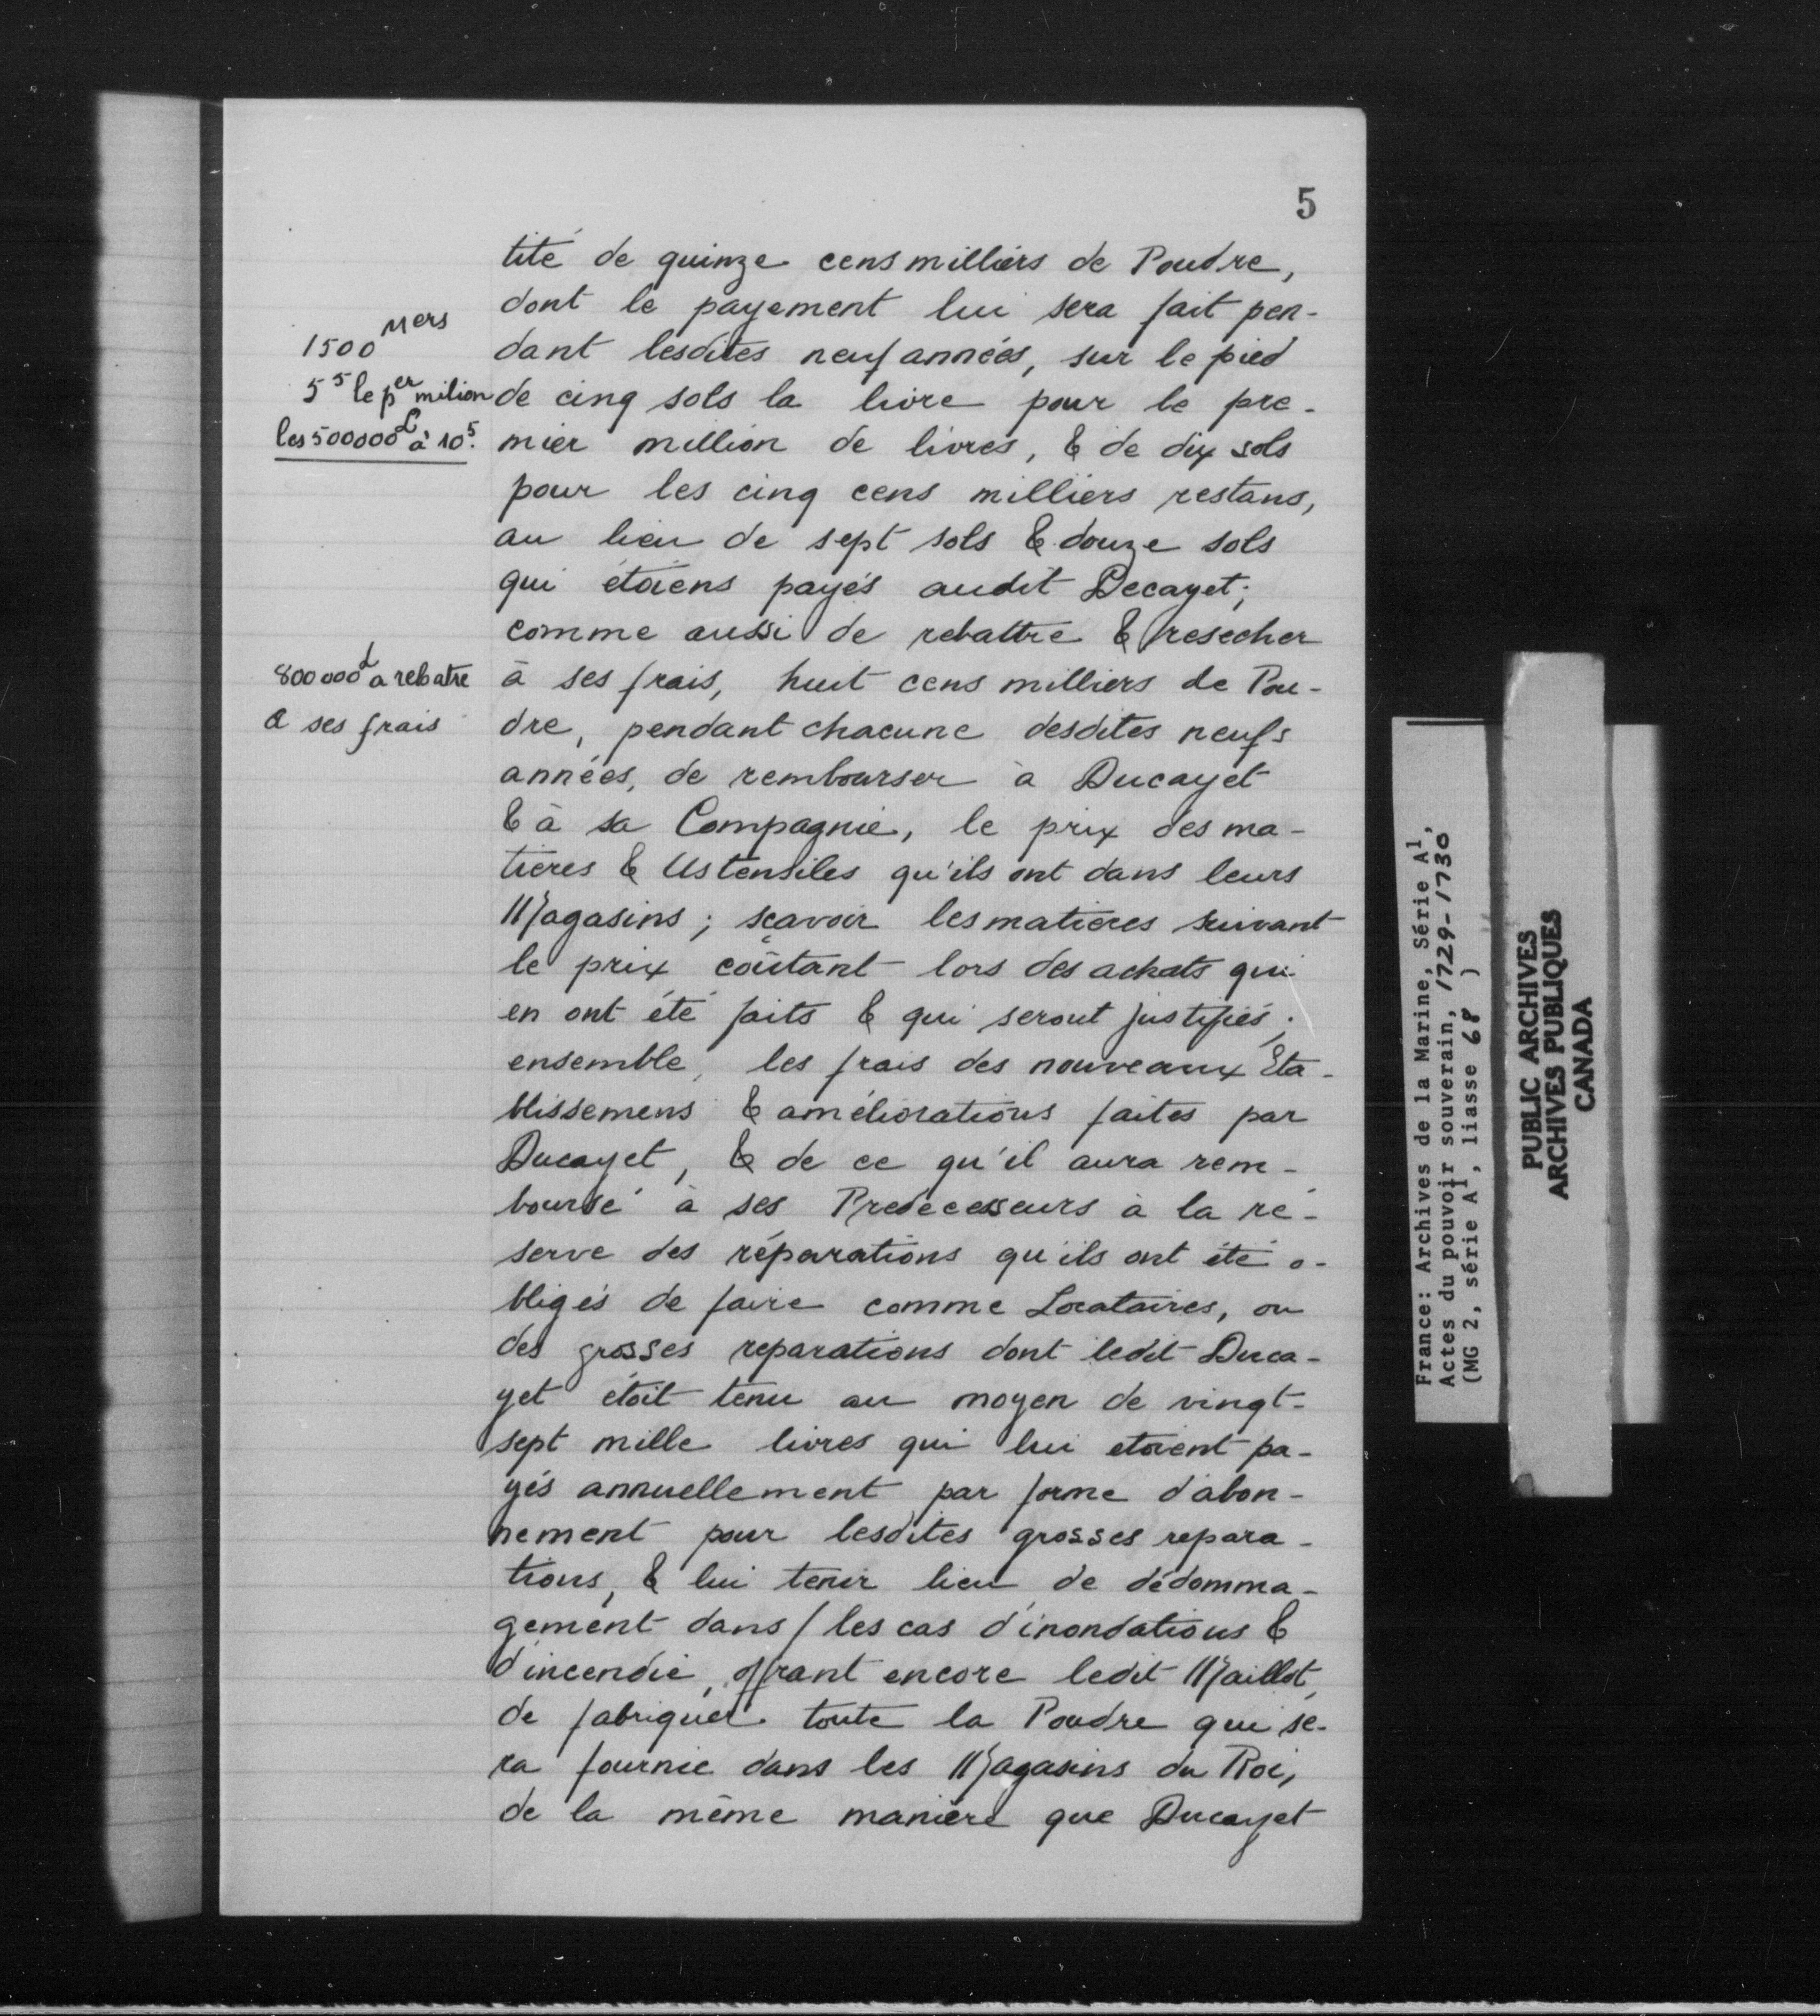 5
tité de quinze cens milliers de Poudre,
dont le payement lui sera fait pen-
1500 Mers
dant lesdites neuf années, sur le pied
5s le per milion
de cinq sols la livre pour le pre-
les 500000L à 10s.
mier million de livres, & de dix sols
pour les cinq cens milliers restans,
au lieu de sept sols & douze sols
qui étoiens payés audit Decayet;
comme aussi de rebattre & resecher
800000L a rebatre
à ses frais, huit cens milliers de Pou-
a ses frais
dre, pendant chacune desdites neufs
années, de rembourser à Ducayet
& à sa Compagnie, le prix des ma-
tieres & Ustensiles qu'ils ont dans leurs
Magasins; sçavoir les matieres suivant
le prix coûtant lors des achats qui
en ont été faits & qui seront justifiés;
ensemble, les frais des nouveaux Eta-
blissemens & améliorations faites par
Ducayet, & de ce qu'il aura rem-
boursé à ses Predecesseurs à la ré-
serve des réparations qu'ils ont été o-
bligés de faire comme Locataires, ou
des grosses reparations dont ledit Duca-
yet étoit tenu au moyen de vingt-
sept mille livres qui lui etoient pa-
yés annuellement par forme d'abon-
nement pour lesdites grosses repara-
tions, & lui tenir lieu de dédomma-
gement dans les cas d'inondations &
d'incendie, offrant encore ledit Maillot,
de fabriquer toute la Poudre qui se-
ra fournie dans les Magasins du Roi,
de la même manière que Ducayet
France: Archives de la Marine, Série A1,
Actes du pouvoir souverain, 1729-1730
(MG 2, série A1, liasse 68 )
PUBLIC ARCHIVES
ARCHIVES PUBLIQUES
CANADA